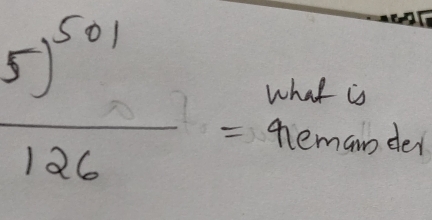 5)^501
what is
126 = Remainder